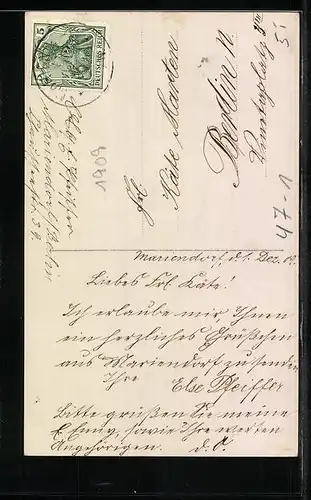 5
DEUTSCHES REICH
Mariendorf b/Berlin
1909
Frl.
Käte Marten
Berlin N.
47-1
Mariendorf, d. 1. Dez. 09.
Liebes Frl. Käte!
Ich erlaube mir, Ihnen
ein herzliches Grüßchen
aus Mariendorf zu senden
Ihre
Else Pfeiffer
Bitte grüßen Sie meine
sowie Ihre werten
Angehörigen. d. O.